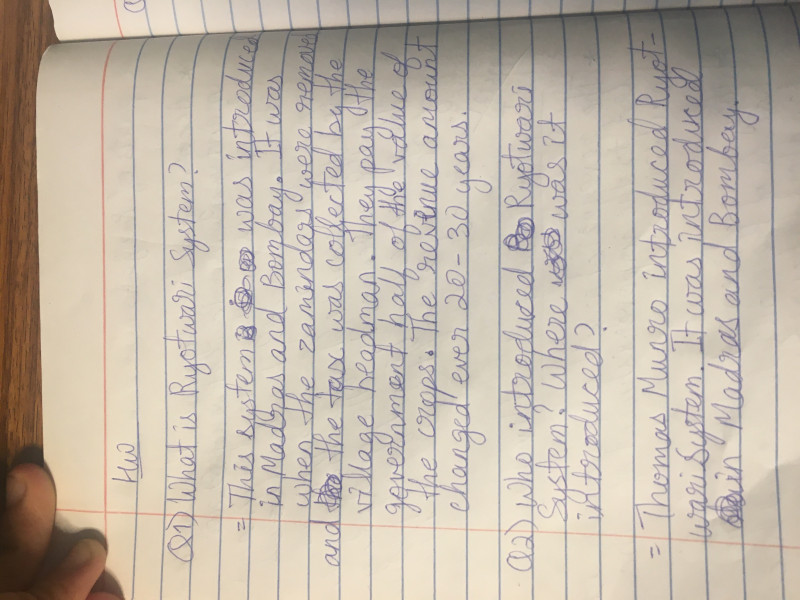 HW
Q1) What is Ryotwari System?
= This system was introduced
in Madras and Bombay. It was
when the zamindars were remove
and the tax was collected by the
village headman. They pay the
government half of the value of
the crops. The revenue amount
changed ever 20-30 years.
Q2) Who introduced Ryotwari
System? Where was it
introduced?
= Thomas Mucro introduced Ryot-
wari System. It was introduced
in Madras and Bombay.